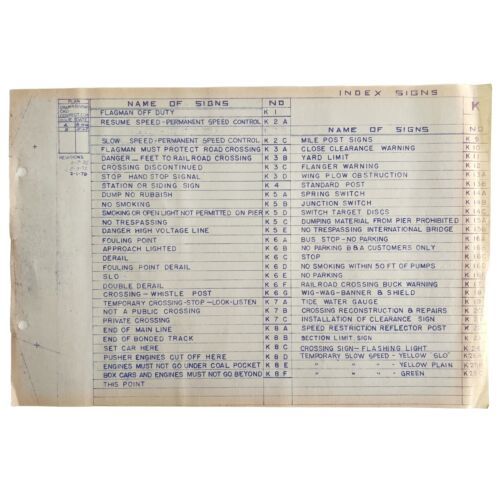 INDEX SIGNS
K
PLAN
NAME OF SIGNS NO
FLAGMAN OFF DUTY K 1
RESUME SPEED-PERMANENT SPEED CONTROL K 2 A
SLOW SPEED-PERMANENT SPEED CONTROL K 2 C
FLAGMAN MUST PROTECT ROAD CROSSING K 3 A
DANGER — FEET TO RAILROAD CROSSING K 3 B
CROSSING DISCONTINUED K 3 C
STOP HAND STOP SIGNAL K 3 D
STATION OR SIDING SIGN K 4
DUMP NO RUBBISH K 5 A
NO SMOKING K 5 B
SMOKING OR OPEN LIGHT NOT PERMITTED ON PIER K 5 D
NO TRESPASSING K 5 C
DANGER HIGH VOLTAGE LINE K 5 E
FOULING POINT K 6 A
APPROACH LIGHTED K 6 B
DERAIL K 6 C
FOULING POINT DERAIL K 6 D
SLO K 6 E
DOUBLE DERAIL K 6 F
CROSSING - WHISTLE POST K 6 G
TEMPORARY CROSSING-STOP-LOOK-LISTEN K 7 A
NOT A PUBLIC CROSSING K 7 B
PRIVATE CROSSING K 7 C
END OF MAIN LINE K 8 A
END OF BONDED TRACK K 8 B
SET CAR HERE K 8 C
PUSHER ENGINES CUT OFF HERE K 8 D
ENGINES MUST NOT GO UNDER COAL POCKET K 8 E
BOX CARS AND ENGINES MUST NOT GO BEYOND K 8 F
THIS POINT
NAME OF SIGNS NO
MILE POST SIGNS K 9
CLOSE CLEARANCE WARNING K 10
YARD LIMIT K 11
FLANGER WARNING K 12
WING PLOW OBSTRUCTION K 13A
STANDARD POST
SPRING SWITCH K 14A
JUNCTION SWITCH K 14B
SWITCH TARGET DISCS K 14C
DUMPING MATERIAL FROM PIER PROHIBITED K 15A
NO TRESPASSING INTERNATIONAL BRIDGE K 15B
BUS STOP-NO PARKING K 16A
NO PARKING B&A CUSTOMERS ONLY K 16B
STOP K 16C
NO SMOKING WITHIN 50 FT OF PUMPS K 16D
NO PARKING K 16E
RAILROAD CROSSING BUCK WARNING
WIG-WAG-BANNER & SHIELD
TIDE WATER GAUGE
CROSSING RECONSTRUCTION & REPAIRS
INSTALLATION OF CLEARANCE SIGN
SPEED RESTRICTION REFLECTOR POST
SECTION LIMIT SIGN
CROSSING SIGN-FLASHING LIGHT
TEMPORARY SLOW SPEED - YELLOW "SLO"
" " " " YELLOW PLAIN
" " " " GREEN